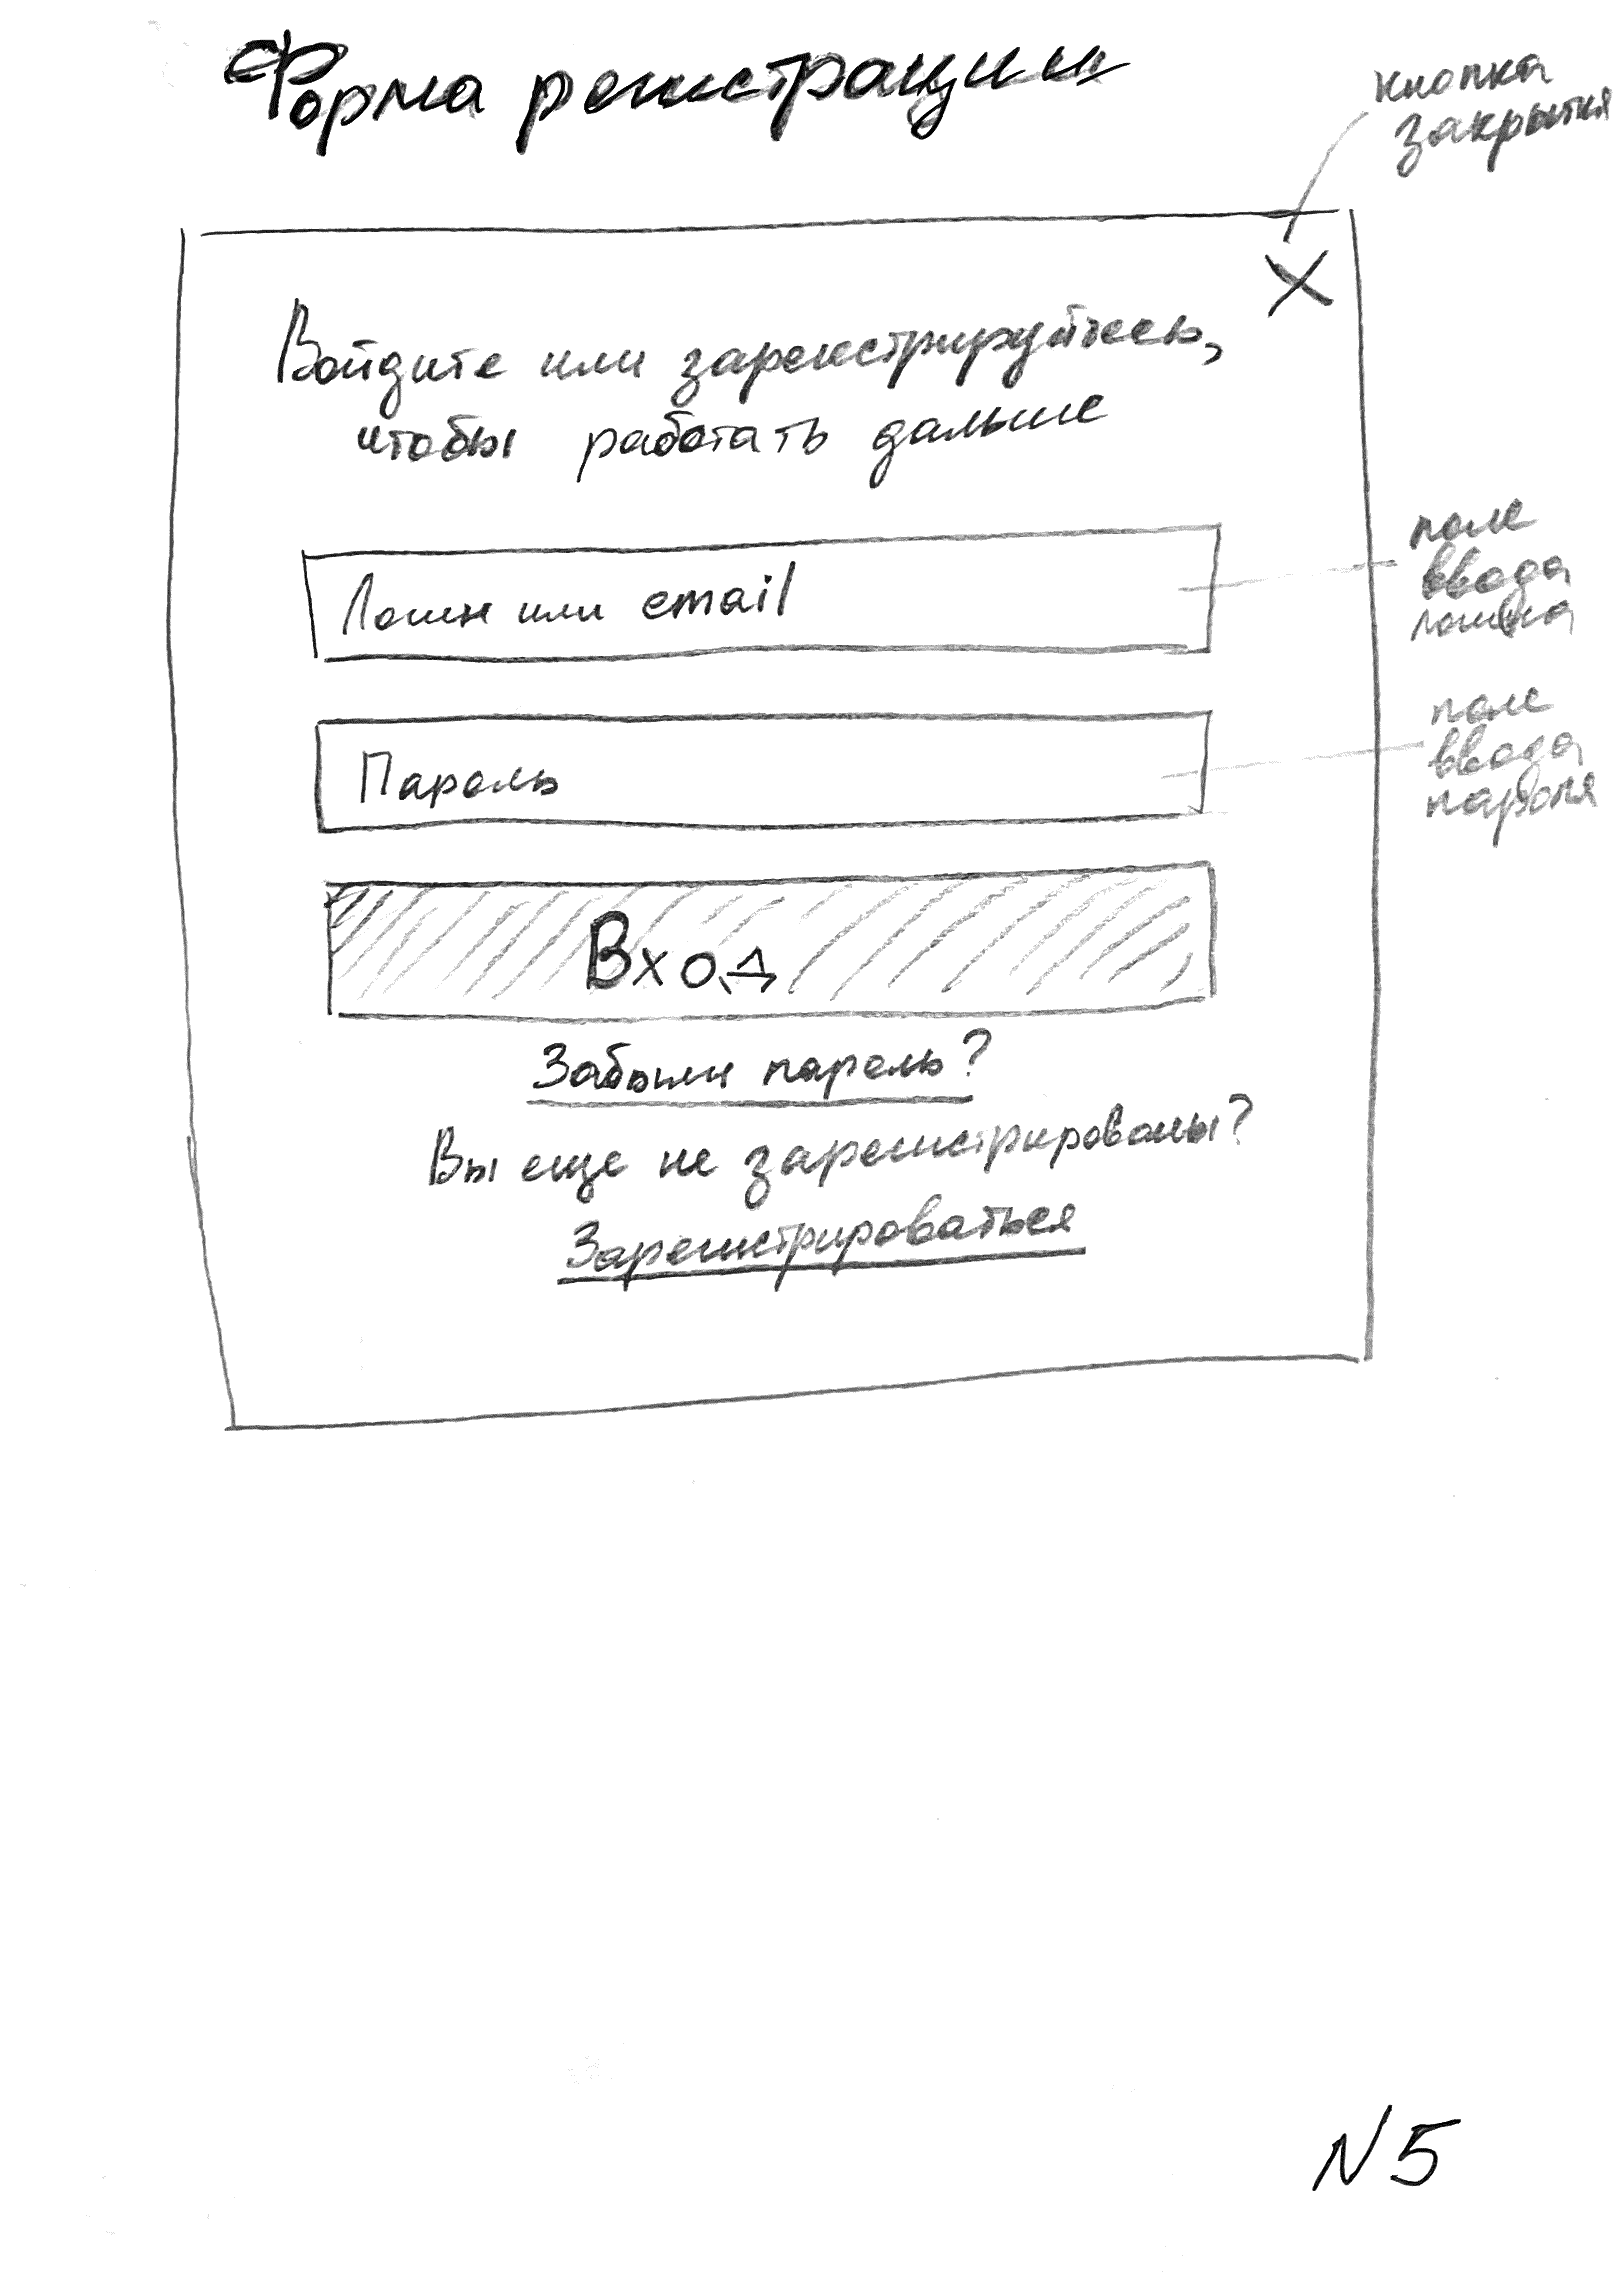 Форма регистрации
кнопка
закрытия
X
Войдите или зарегистрируйтесь,
чтобы работать дальше
Логин или email
поле
ввода
логина
Пароль
поле
ввода
пароля
Вход
Забыли пароль?
Вы еще не зарегистрированы?
Зарегистрироваться
N5